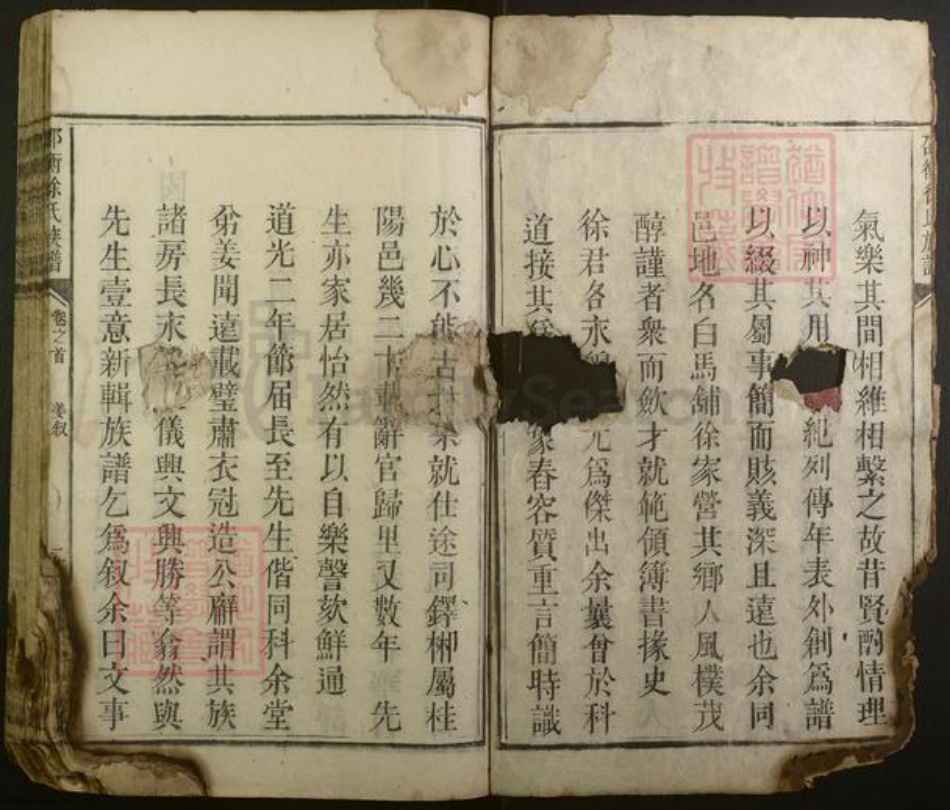 氣樂其間相維相繫之故昔賢酌情理
以神其用 紀列傳年表外創爲譜
以綴其屬事簡而賅義深且遠也余同
邑地名白馬舖徐家營其鄉人風樸茂
醇謹者衆而斂才就範領簿書掾史
徐君各永 尤爲傑出余曩曾於科
道接其 家春容質重言簡時識
於心不能 古 就仕途司鐸郴屬桂
陽邑幾二十載辭官歸里又數年 先
生亦家居怡然有以自樂謦欬鮮通
道光二年節届長至先生偕同科余堂
弟姜聞遠戴璧肅衣冠造公廨謂其族
諸房長永 儀與文興勝等翕然與
先生壹意新輯族譜乞爲叙余曰文事
邵衡徐氏族譜
卷之首
姜叙